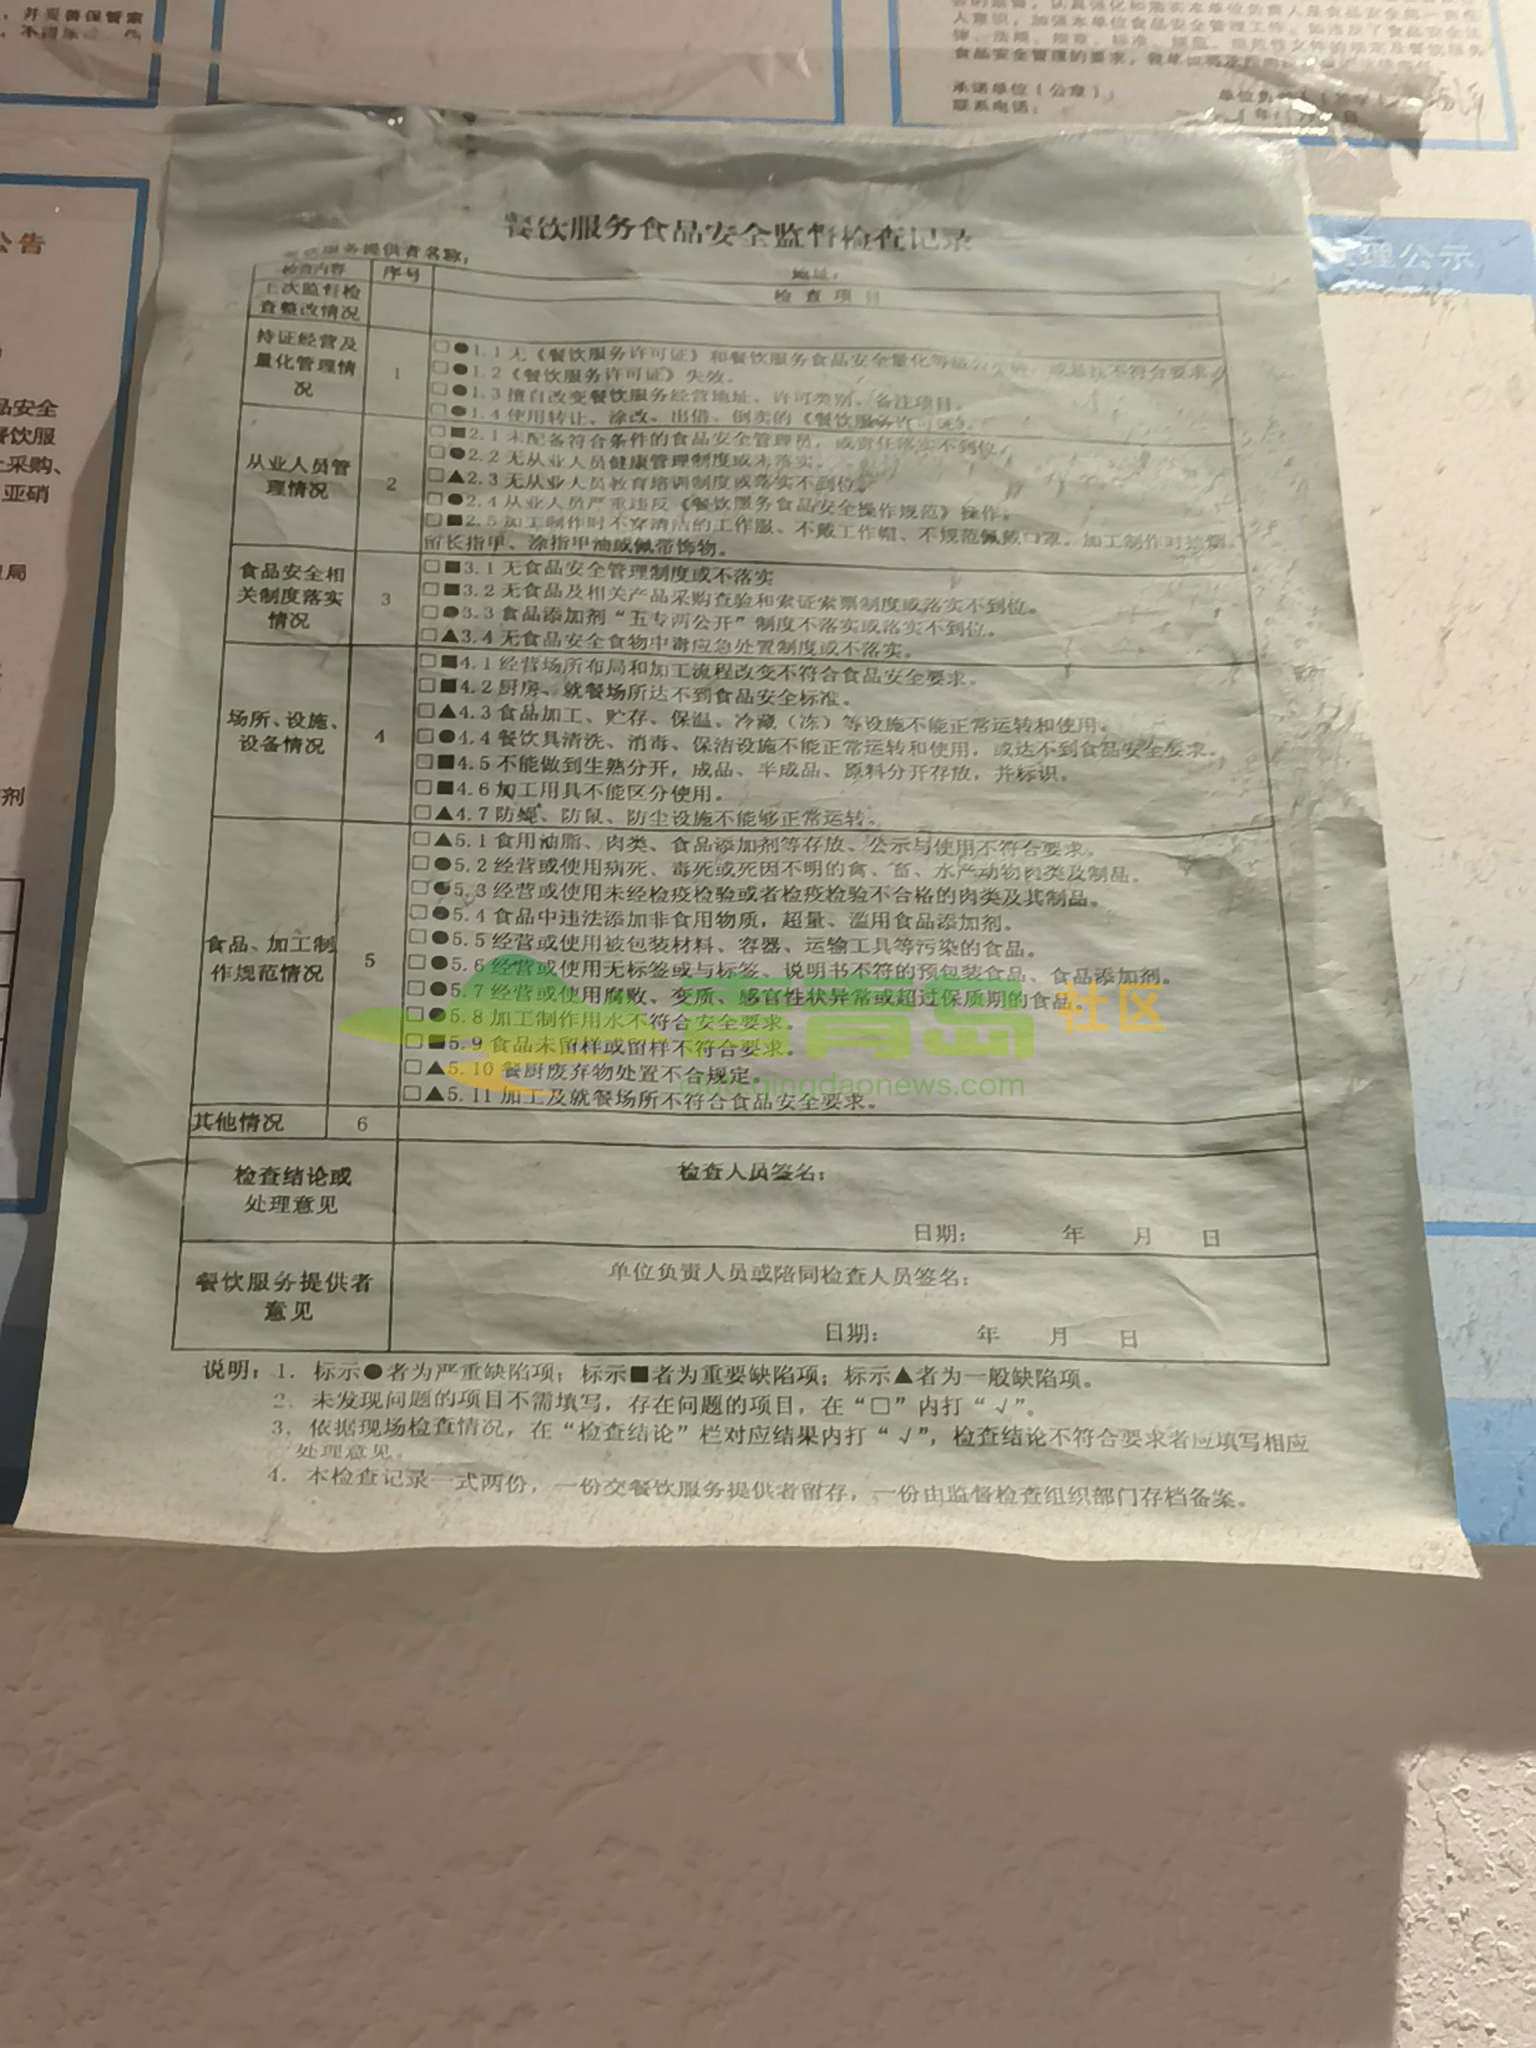 并妥善保管索
公告
品安全
餐饮服
采购、
亚硝
局
剂
人意识，加强本单位食品安全管理工作，如违反了食品安全法
食品安全管理的要求，
承诺单位（公章）：
联系电话：
理公示
餐饮服务食品安全监督检查记录
服务提供者名称：
地址：
检查内容 序号 检查项目
上次监督检
查整改情况
持证经营及
量化管理情
况
1
□●1.1 无《餐饮服务许可证》和餐饮服务食品安全量化等级 不符合要求
□●1.2《餐饮服务许可证》失效。
□●1.3 擅自改变餐饮服务经营地址、许可类别、备注项目。
□●1.4 使用转让、涂改、出借、倒卖的《餐饮服务许可证》。
从业人员管
理情况
2
□■2.1 未配备符合条件的食品安全管理员，或责任落实不到位
□●2.2 无从业人员健康管理制度或未落实。
□▲2.3 无从业人员教育培训制度或落实不到位。
□●2.4 从业人员严重违反《餐饮服务食品安全操作规范》操作。
□■2.5 加工制作时不穿清洁的工作服、不戴工作帽、不规范佩戴口罩，加工制作时
留长指甲、涂指甲油或佩带饰物。
食品安全相
关制度落实
情况
3
□■3.1 无食品安全管理制度或不落实
□■3.2 无食品及相关产品采购查验和索证索票制度或落实不到位。
□●3.3 食品添加剂“五专两公开”制度不落实或落实不到位。
□▲3.4 无食品安全食物中毒应急处置制度或不落实。
场所、设施、
设备情况
4
□■4.1 经营场所布局和加工流程改变不符合食品安全要求。
□■4.2 厨房、就餐场所达不到食品安全标准。
□▲4.3 食品加工、贮存、保温、冷藏（冻）等设施不能正常运转和使用。
□●4.4 餐饮具清洗、消毒、保洁设施不能正常运转和使用，或达不到食品安全要求。
□■4.5 不能做到生熟分开，成品、半成品、原料分开存放，并标识。
□■4.6 加工用具不能区分使用。
□▲4.7 防蝇、防鼠、防尘设施不能够正常运转。
食品、加工制
作规范情况
5
□▲5.1 食用油脂、肉类、食品添加剂等存放、公示与使用不符合要求。
□●5.2 经营或使用病死、毒死或死因不明的禽、畜、水产动物肉类及制品。
□●5.3 经营或使用未经检疫检验或者检疫检验不合格的肉类及其制品。
□●5.4 食品中违法添加非食用物质，超量、滥用食品添加剂。
□●5.5 经营或使用被包装材料、容器、运输工具等污染的食品。
□●5.6 经营或使用无标签或与标签、说明书不符的预包装食品、食品添加剂。
□●5.7 经营或使用腐败、变质、感官性状异常或超过保质期的食品。
□●5.8 加工制作用水不符合安全要求。
□■5.9 食品未留样或留样不符合要求。
□▲5.10 餐厨废弃物处置不合规定。
□▲5.11 加工及就餐场所不符合食品安全要求。
青岛 社区
qingdaonews.com
其他情况 6
检查结论或
处理意见
检查人员签名：
日期： 年 月 日
餐饮服务提供者
意见
单位负责人员或陪同检查人员签名：
日期： 年 月 日
说明：1. 标示●者为严重缺陷项；标示■者为重要缺陷项；标示▲者为一般缺陷项。
2. 未发现问题的项目不需填写，存在问题的项目，在“□”内打“√”。
3. 依据现场检查情况，在“检查结论”栏对应结果内打“√”，检查结论不符合要求者应填写相应
处理意见。
4. 本检查记录一式两份，一份交餐饮服务提供者留存，一份由监督检查组织部门存档备案。